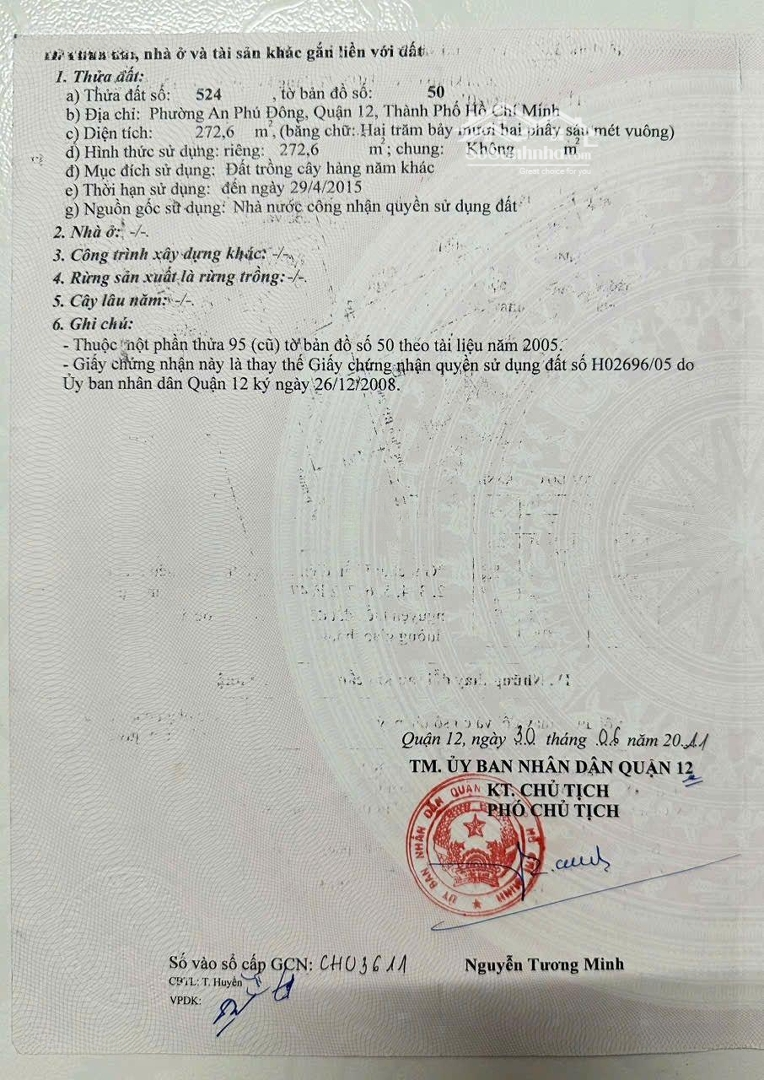 nhà ở và tài sản khác gắn liền với đất
1. Thửa đất:
a) Thửa đất số: 524 , tờ bản đồ số: 50
b) Địa chỉ: Phường An Phú Đông, Quận 12, Thành Phố Hồ Chí Minh
c) Diện tích: 272,6 m², (bằng chữ: Hai trăm bảy mươi hai phẩy sáu mét vuông)
d) Hình thức sử dụng: riêng: 272,6 m²; chung: Không m²
đ) Mục đích sử dụng: Đất trồng cây hàng năm khác
e) Thời hạn sử dụng: đến ngày 29/4/2015
g) Nguồn gốc sử dụng: Nhà nước công nhận quyền sử dụng đất
2. Nhà ở: -/-.
3. Công trình xây dựng khác: -/-.
4. Rừng sản xuất là rừng trồng: -/-.
5. Cây lâu năm: -/-.
6. Ghi chú:
- Thuộc một phần thửa 95 (cũ) tờ bản đồ số 50 theo tài liệu năm 2005.
- Giấy chứng nhận này là thay thế Giấy chứng nhận quyền sử dụng đất số H02696/05 do
Ủy ban nhân dân Quận 12 ký ngày 26/12/2008.
Quận 12, ngày 30 tháng 06 năm 2011
TM. ỦY BAN NHÂN DÂN QUẬN 12
KT. CHỦ TỊCH
PHÓ CHỦ TỊCH
Số vào sổ cấp GCN: CH03611
Nguyễn Tương Minh
CBTL: T. Huyền
VPDK: